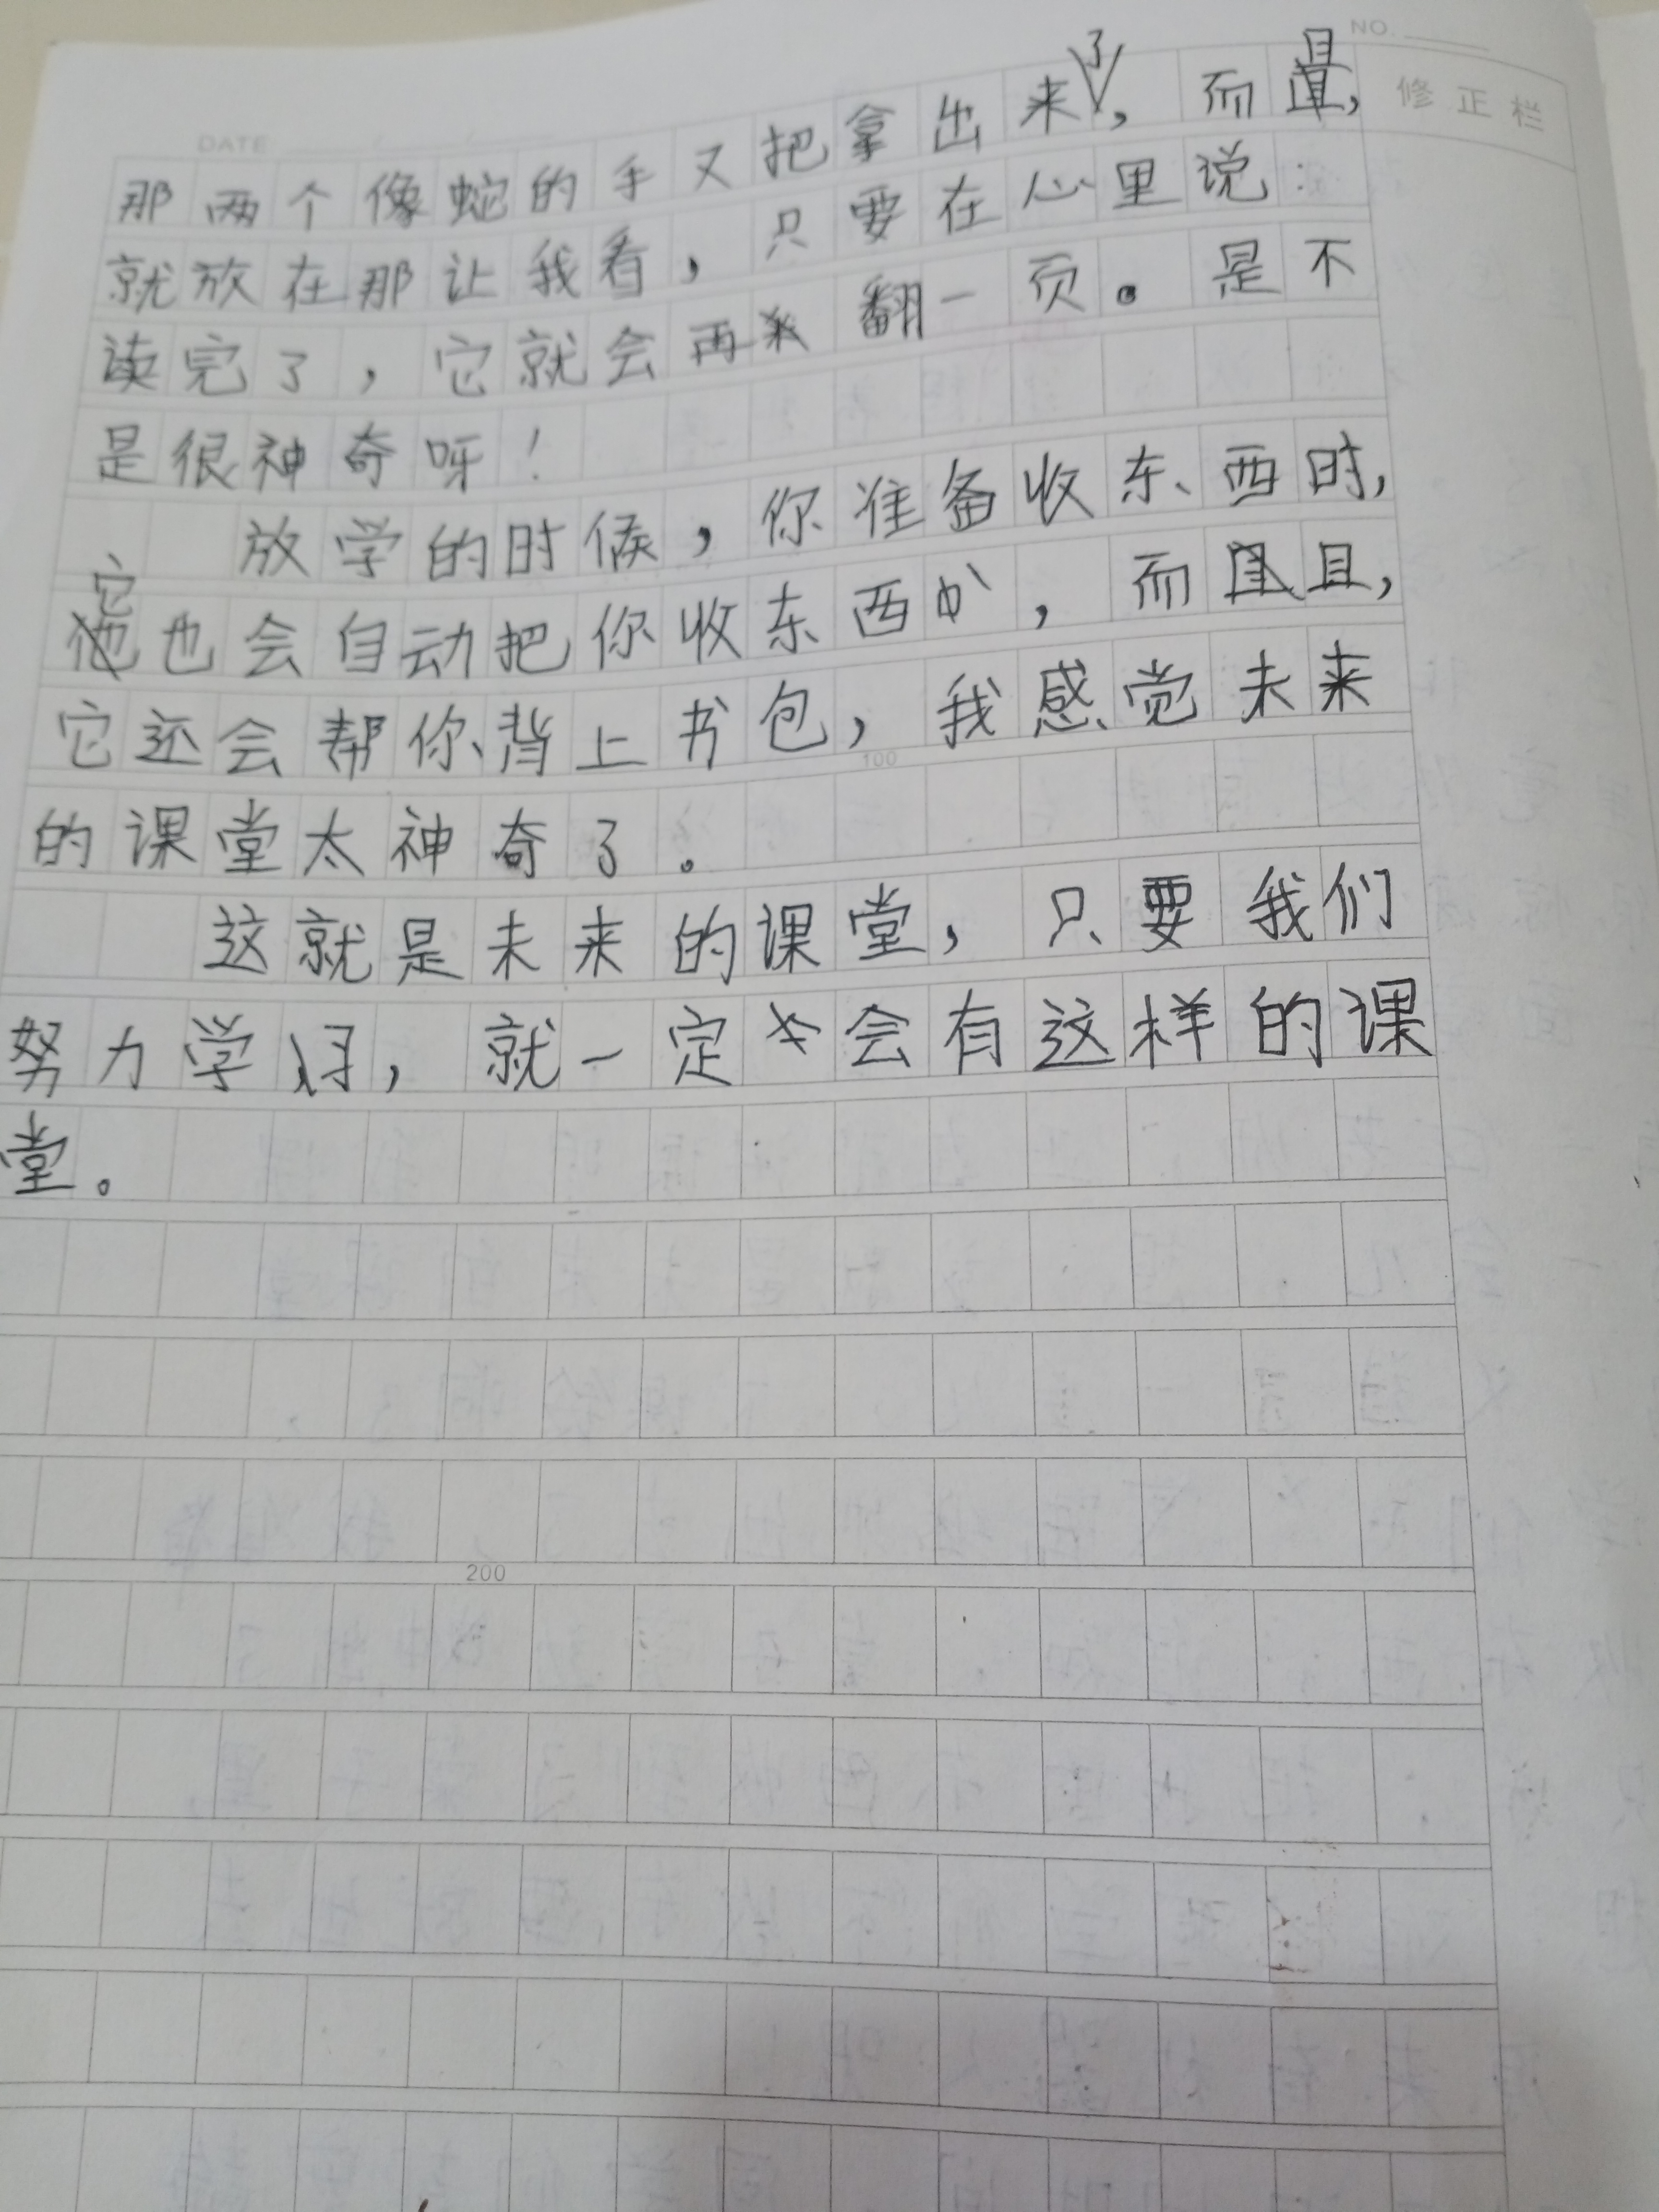 NO.
DATE
修正栏
那两个像蛇的手又把拿出来了，而且，
就放在那让我看，只要在心里说：
读完了，它就会再翻一页。是不
是很神奇呀！
放学的时候，你准备收东西时，
它也会自动把你收东西，而且，
它还会帮你背上书包，我感觉未来
100
的课堂太神奇了。
这就是未来的课堂，只要我们
努力学习，就一定会有这样的课
堂。
200